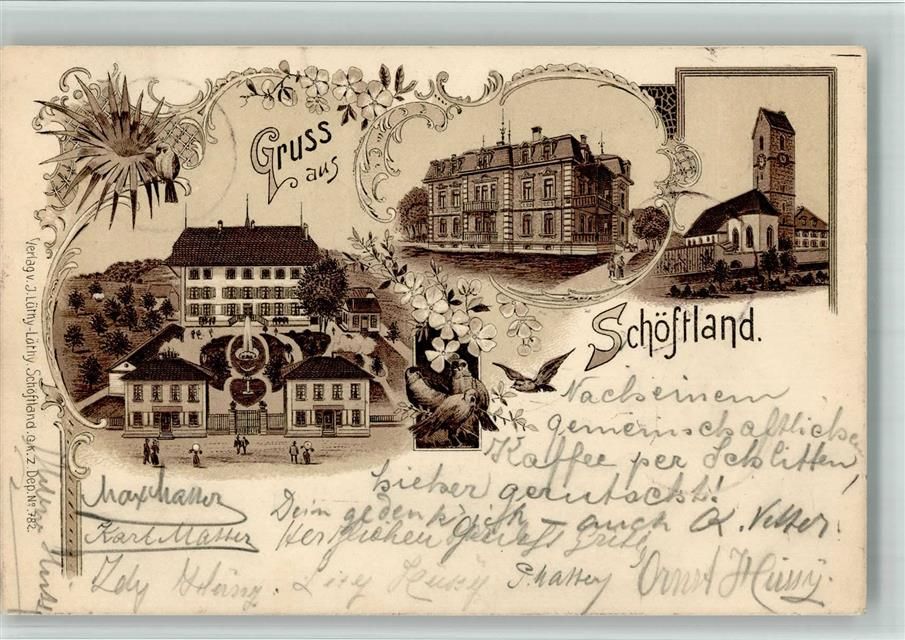 Gruss
aus
Schöftland.
Verlag v. J. Lüthy-Lüthy, Schöftland. g.K.Z. Dep. No. 782.
Nach einem
gemeinschaftlichen
Kaffee per Schlitten
hieher gerutscht!
Dein gedenk auch
Herzlichen Gruss
Max Matter
Karl Matter
Hüssy
Lisy Hüssy
P. Matter
Ernst Hüssy.